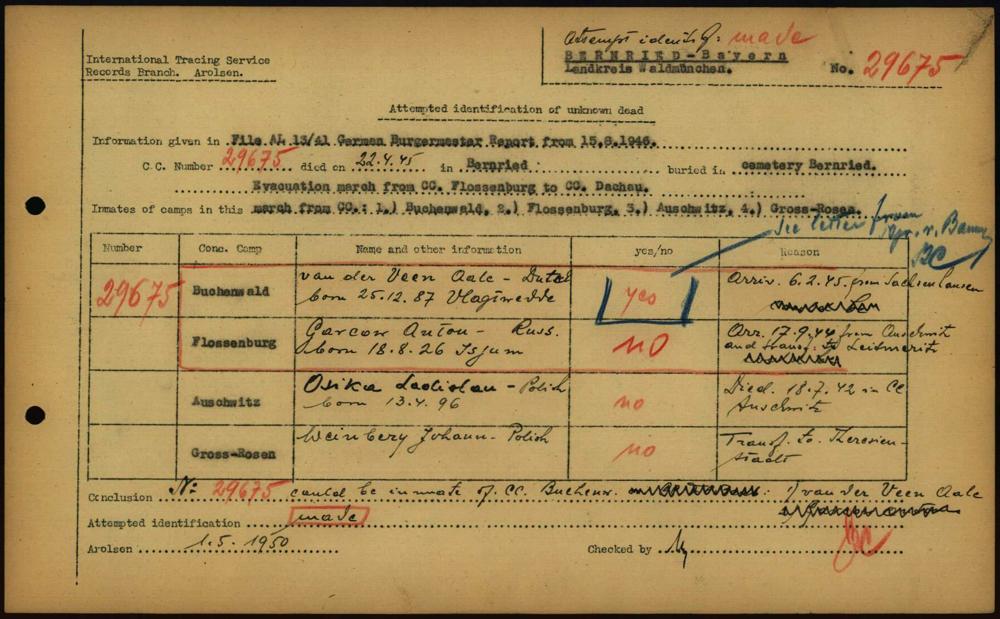 Attempt identif: made
International Tracing Service
Records Branch. Arolsen.
BERNRIED-Bayern
Landkreis Waldmünchen.
No. 29675
Attempted identification of unknown dead
Information given in File AL 13/41 German Burgermester Report from 15.8.1946.
C.C. Number 29675 died on 22.4.45 in Bernried buried in cemetery Bernried.
Evacuation march from CC. Flossenburg to CC. Dachau.
Inmates of camps in this march from CC.: 1.) Buchenwald, 2.) Flossenburg, 3.) Auschwitz, 4.) Gross-Rosen.
See letter from
Number Conc. Camp Name and other information yes/no Reason
29675 Buchenwald van der Veen Aale - Dutch yes Arriv. 6.2.45 from Sachsenhausen
born 25.12.87 Vlagtwedde
Flossenburg Garcow Anton - Russ. no Arr. 17.9.44 from Auschwitz
born 18.8.26 Isjum and transf. to Leitmeritz
Auschwitz Osika Ladislau - Polish no Died 18.7.42 in CC
born 13.4.96 Auschwitz
Gross-Rosen Weinberg Johann - Polish no Transf. to Theresien-
stadt
Conclusion N: 29675 could be inmate of CC. Buchenw. : 1) van der Veen Aale
Attempted identification made
Arolsen 1.5.1950 Checked by